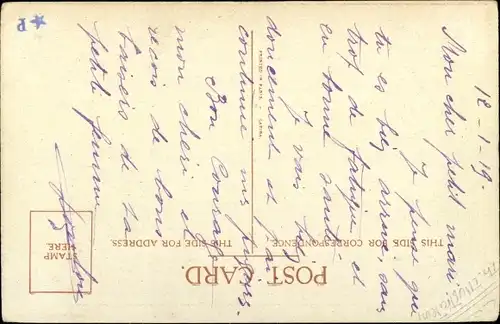 12-1-19.
Mon cher petit mari
Je pense que
tu es bien arrivé, sans
trop de fatigue et
en bonne santé.
Je vais bien
doucement et j'ai
continue mes piqures.
Bon Courage
mon cheri et
recois de bons
baisers de ta
petite femme
POST CARD.
THIS SIDE FOR CORRESPONDENCE.
THIS SIDE FOR ADDRESS.
STAMP
HERE.
P